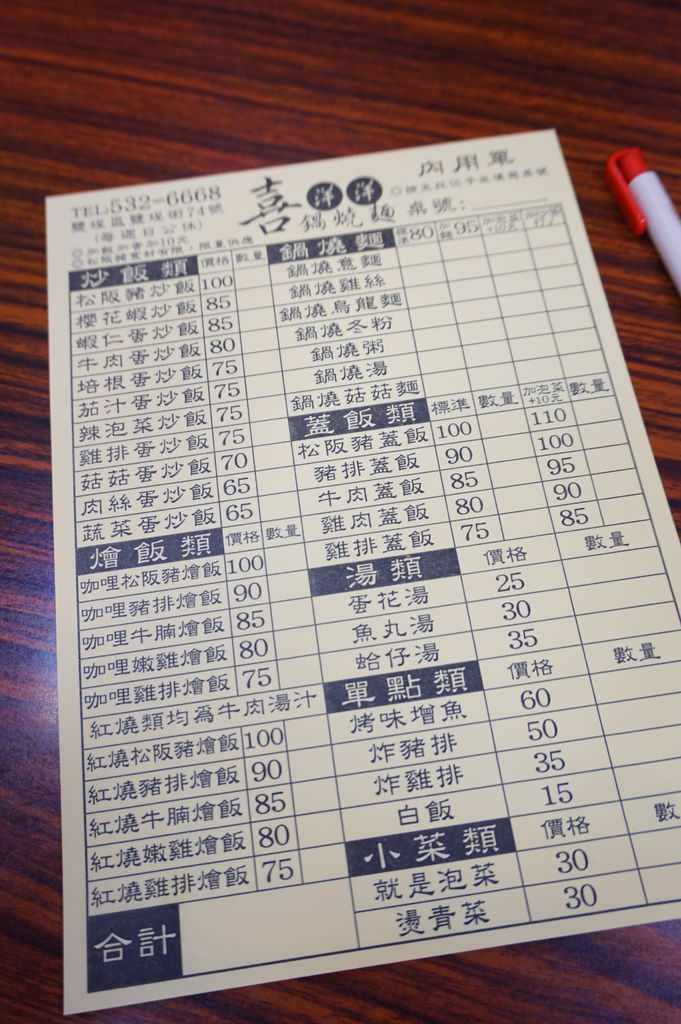 TEL:532-6668
鹽埕區鹽埕街74號
(每週日公休)
◎加飯加麵加10元
◎松阪豬食材有限,限量供應
喜洋洋
鍋燒麵
內用單
桌號:
炒飯類 價格 數量
松阪豬炒飯 100
櫻花蝦炒飯 85
蝦仁蛋炒飯 85
牛肉蛋炒飯 80
培根蛋炒飯 75
茄汁蛋炒飯 75
辣泡菜炒飯 75
雞排蛋炒飯 75
菇菇蛋炒飯 70
肉絲蛋炒飯 65
蔬菜蛋炒飯 65
燴飯類 價格 數量
咖哩松阪豬燴飯 100
咖哩豬排燴飯 90
咖哩牛腩燴飯 85
咖哩嫩雞燴飯 80
咖哩雞排燴飯 75
紅燒類均為牛肉湯汁
紅燒松阪豬燴飯 100
紅燒豬排燴飯 90
紅燒牛腩燴飯 85
紅燒嫩雞燴飯 80
紅燒雞排燴飯 75
合計
鍋燒麵 標準80 加麵95 加泡菜+10元
鍋燒意麵
鍋燒雞絲
鍋燒烏龍麵
鍋燒冬粉
鍋燒粥
鍋燒湯
鍋燒菇菇麵
蓋飯類 標準 數量 加泡菜+10元 數量
松阪豬蓋飯 100 110
豬排蓋飯 90 100
牛肉蓋飯 85 95
雞肉蓋飯 80 90
雞排蓋飯 75 85
湯類 價格 數量
蛋花湯 25
魚丸湯 30
蛤仔湯 35
單點類 價格 數量
烤味增魚 60
炸豬排 50
炸雞排 35
白飯 15
小菜類 價格 數
就是泡菜 30
燙青菜 30